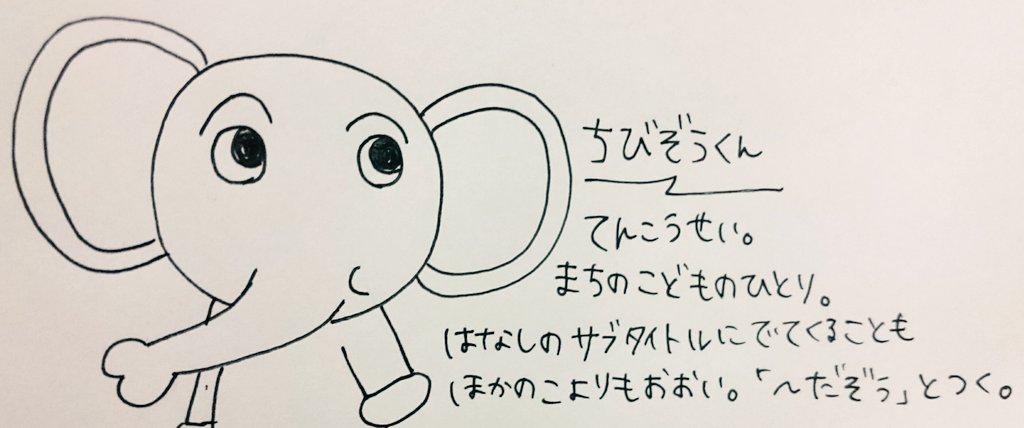 ちびぞうくん
てんこうせい。
まちのこどものひとり。
はなしのサブタイトルにでてくることも
ほかのこよりもおおい。「〜だぞう」とつく。